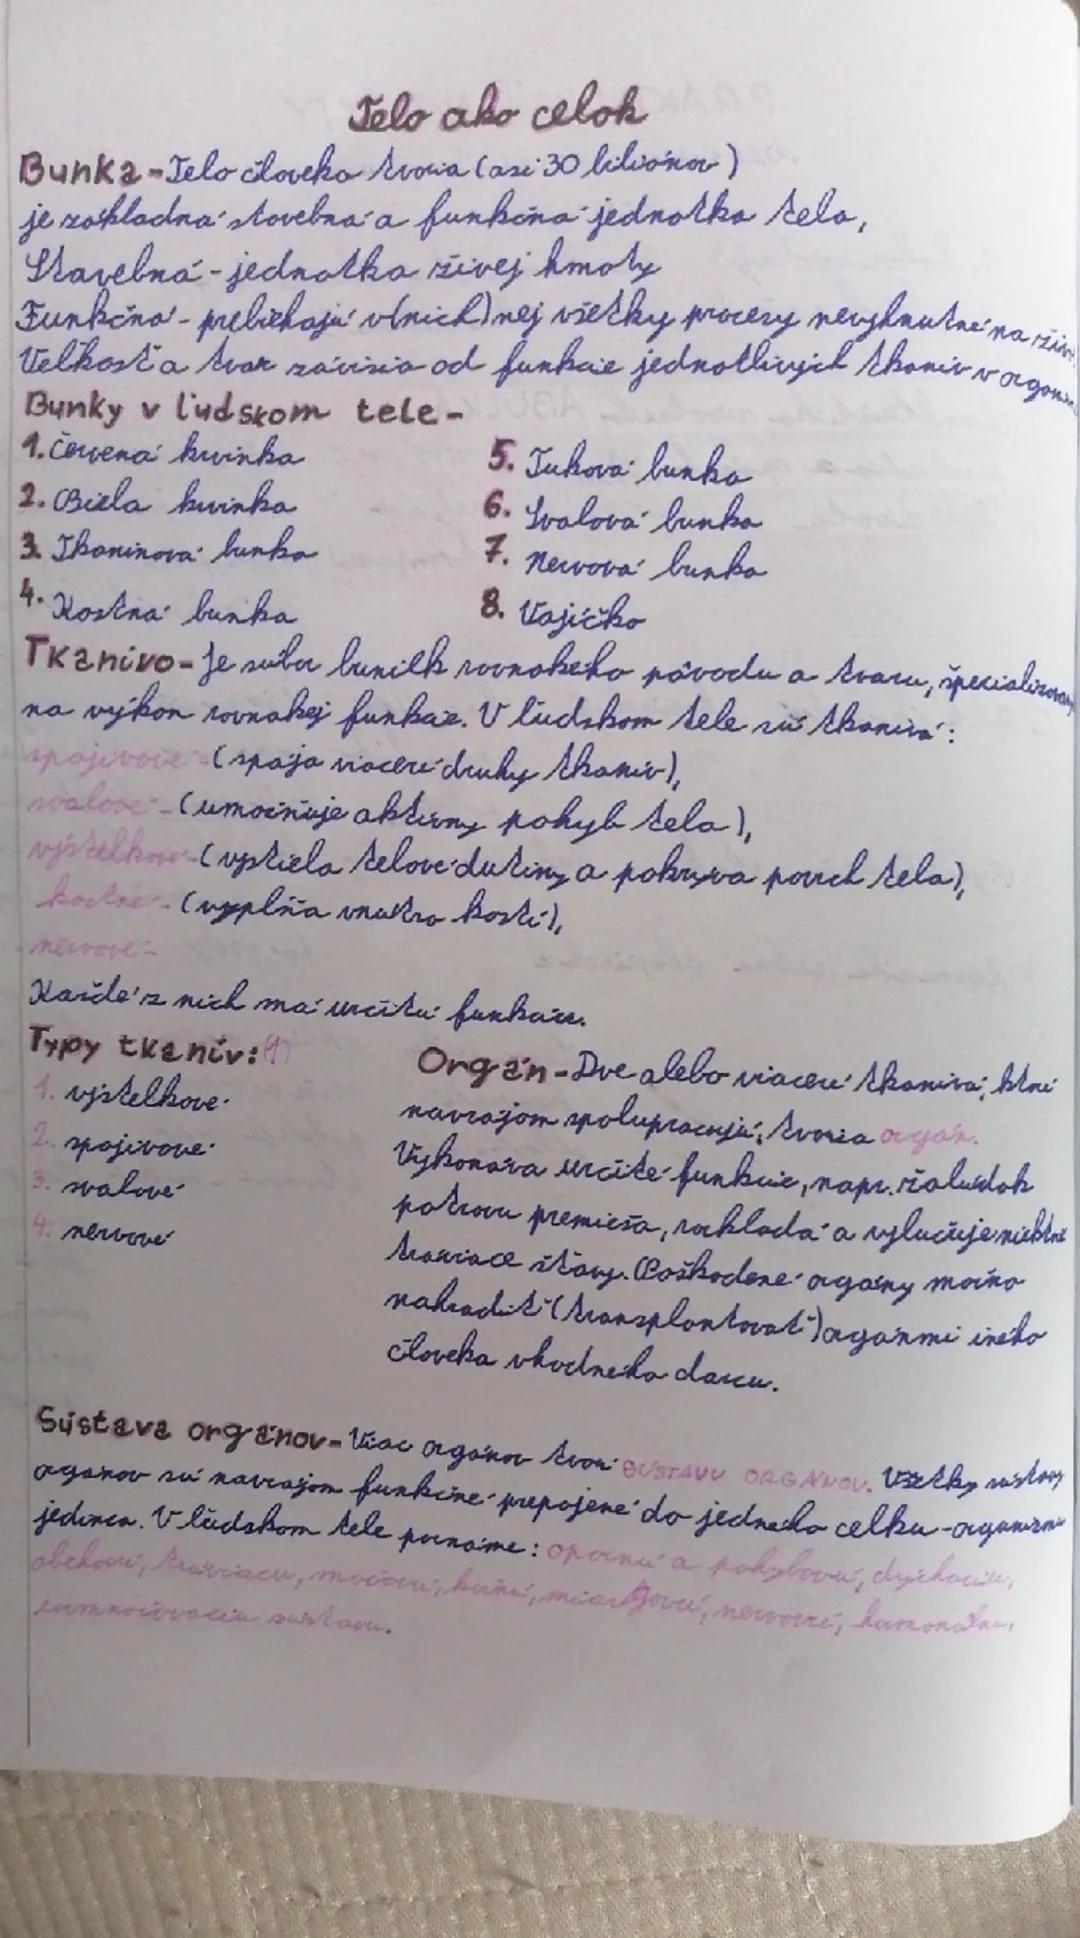 Telo ako celok
Bunka - Telo človeka tvoria (asi 30 biliónov)
je základná stavebná a funkčná jednotka tela,
Stavebná - jednotka živej hmoty
Funkčná - prebiehajú v(nich) nej všetky procesy nevyhnutné na
Veľkosť a tvar závisia od funkcie jednotlivých tkanív v
Bunky v ľudskom tele -
1. Červená krvinka
2. Biela krvinka
3. Tkaninová bunka
4. Kostná bunka
5. Tuková bunka
6. Svalová bunka
7. Nervová bunka
8. Vajíčko
Tkanivo - Je súbor buniek rovnakého pôvodu a tvaru,
na výkon rovnakej funkcie. V ľudskom tele sú tkanivá:
spojivové - (spája viaceré druhy tkanív),
svalové - (umožňuje aktívny pohyb tela),
výstelkové - (vystiela telové dutiny a pokrýva povrch tela),
kostné - (vypĺňa vnútro kostí),
nervové -
Každé z nich má určitú funkciu.
Typy tkanív: (4)
1. výstelkové
2. spojivové
3. svalové
4. nervové
Orgán - Dve alebo viaceré tkanivá, ktoré
navzájom spolupracujú, tvoria orgán.
Vykonáva určité funkcie, napr. žalúdok
potravu premieša, rozkladá a vylučuje niektoré
tráviace šťavy. Poškodené orgány možno
nahradiť (transplantovať) orgánmi iného
človeka vhodného darcu.
Sústava orgánov - Viac orgánov tvorí SÚSTAVU ORGÁNOV. Všetky sústavy
orgánov sú navzájom funkčne prepojené do jedného celku - organizmu
jedinca. V ľudskom tele poznáme: opornú a pohybovú, dýchaciu,
obehovú, tráviacu, močovú, kožnú, miazgovú, nervovú, hormonálnu,
rozmnožovaciu sústavu.